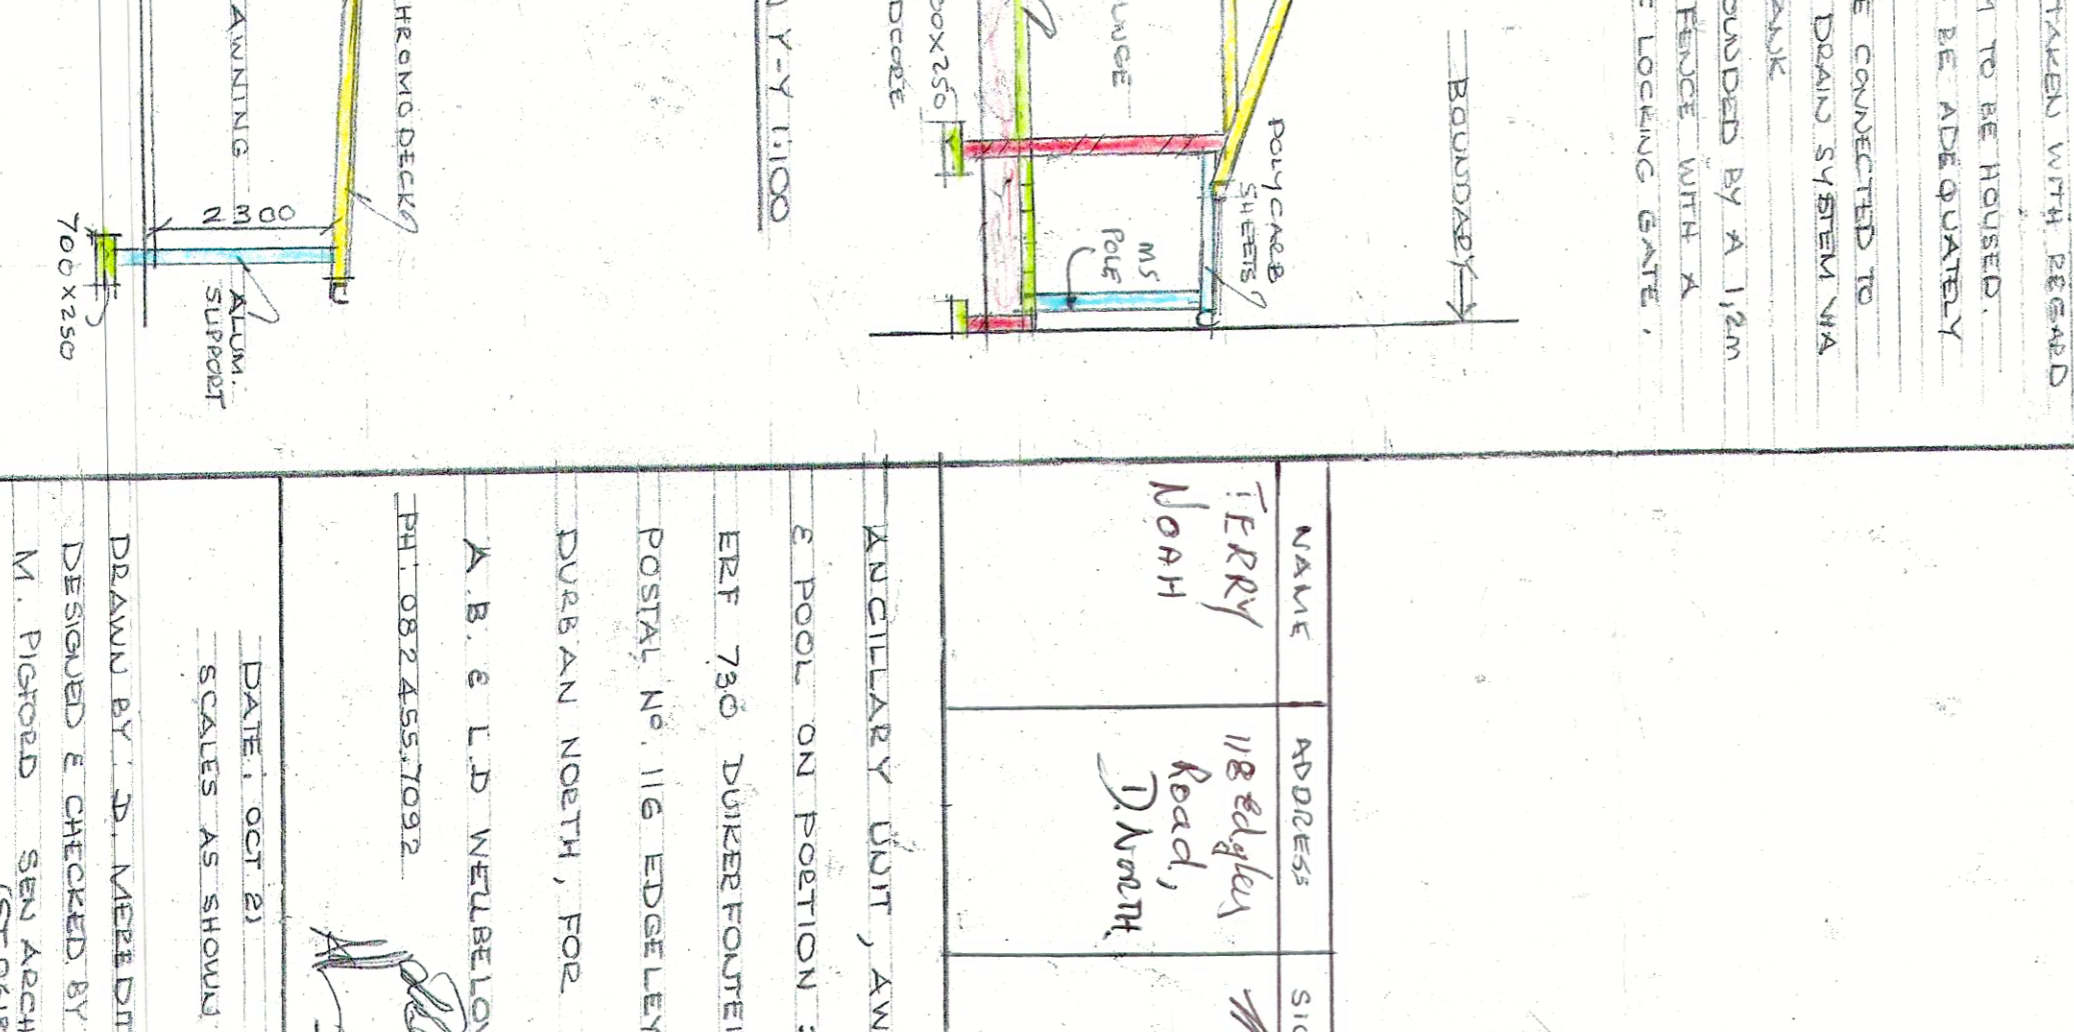 TAKEN WITH REGARD
TO BE HOUSED.
BE ADEQUATELY
CONNECTED TO
DRAIN SYSTEM VIA
ANK
OUNDED BY A 1,2m
FENCE WITH A
LOCKING GATE.
BOUNDARY
POLYCARB
SHEETS
UNGE
MS
POLE
00X250
DCORE
Y-Y 1:100
HROMODECK
AWNING
2300
ALUM.
SUPPORT
700X250
NAME
ADDRESS
SIG
TERRY
NOAH
118 Edgley
Road,
D. North
ANCILLARY UNIT, AW
& POOL ON PORTION
ERF 730 DUIKERFONTEI
POSTAL No. 116 EDGELEY
DURBAN NORTH, FOR
A.B. & L.D WELLBELOV
PH: 082 455.7092
DATE. OCT 21
SCALES AS SHOWN
DRAWN BY: D. MEREDIT
DESIGNED & CHECKED BY
M. PIGFORD SEN ARCH